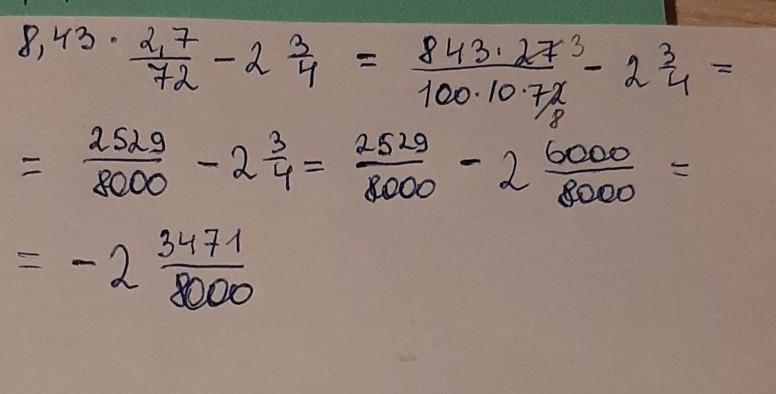 8,43 · 2,7/72 - 2 3/4 = 843 · 27 3/100 · 10 · 72 8 - 2 3/4 =
= 2529/8000 - 2 3/4 = 2529/8000 - 2 6000/8000 =
= - 2 3471/8000